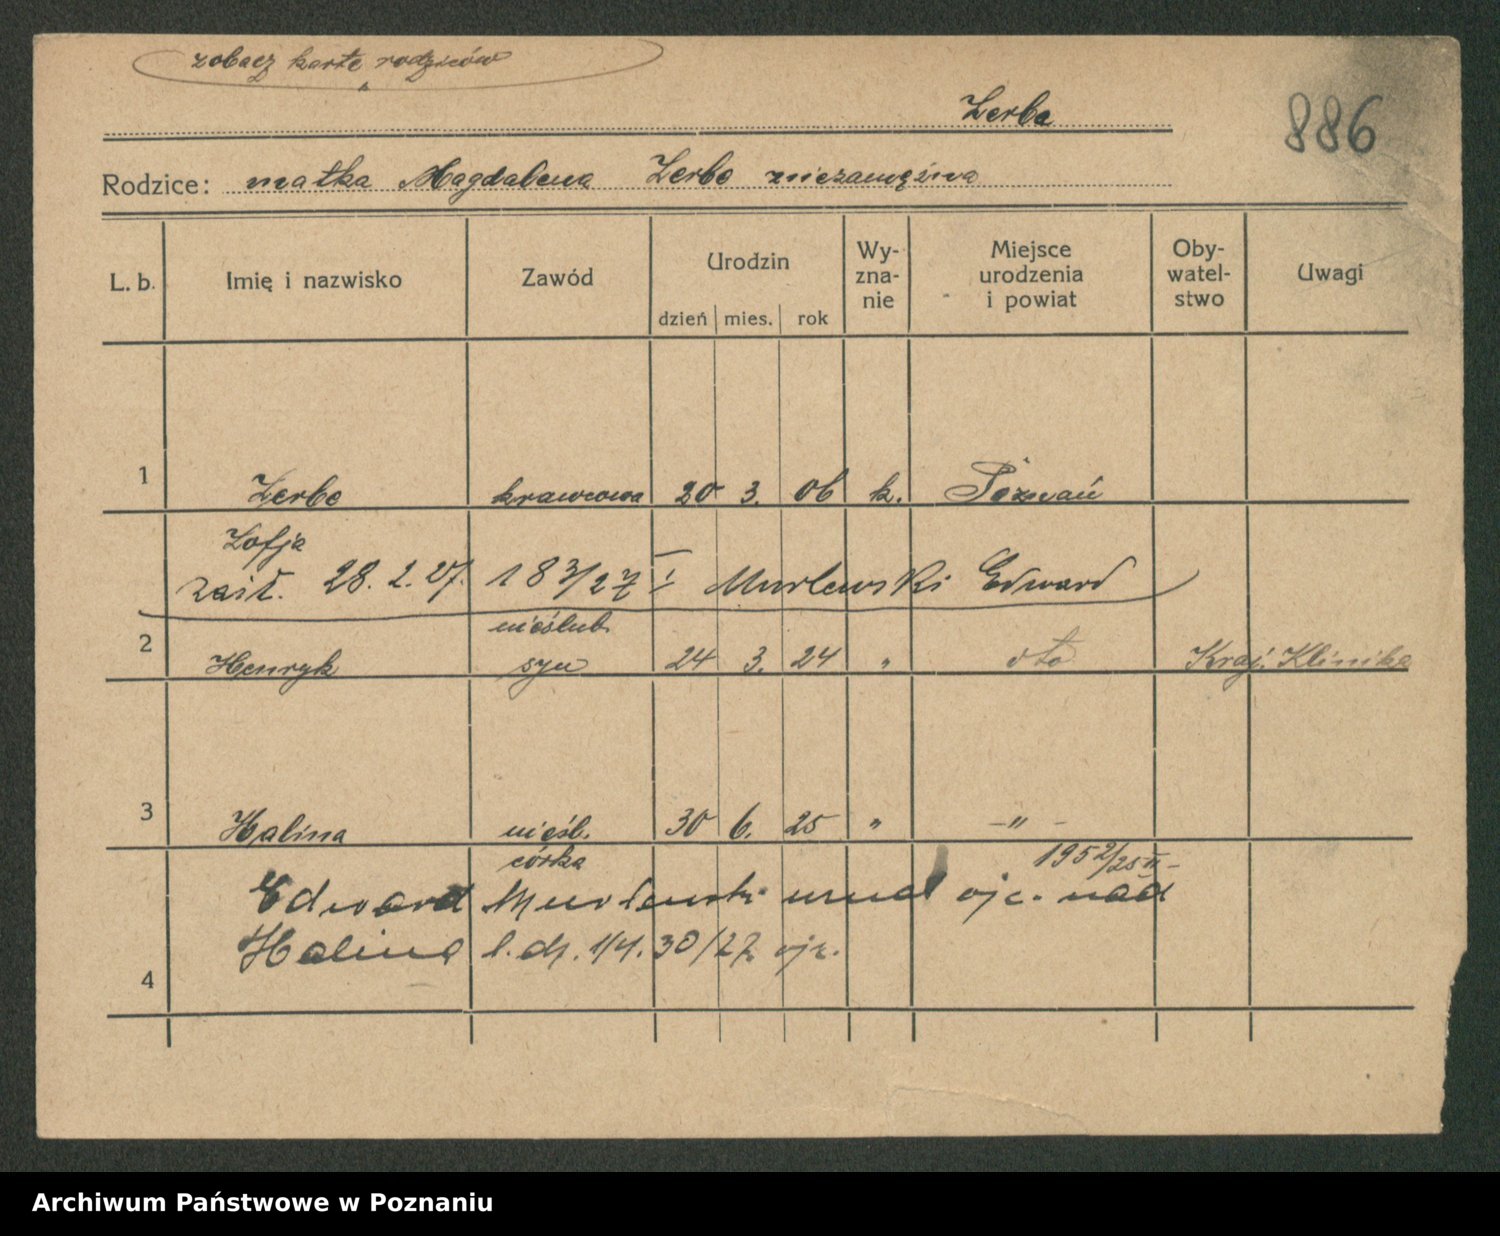 zobacz kartę rodziców
Zerbe
886
Rodzice: matka Magdalena Zerbe niezamężna
L. b. Imię i nazwisko Zawód Urodzin Wy-zna-nie Miejsce urodzenia i powiat Oby-watel-stwo Uwagi
dzień mies. rok
1 Zerbe krawcowa 20 3. 06 k. Poznań
Zofja
zaśl. 28. 2. 27. 183/27 I Murlewski Edward
nieślub.
2 Henryk syn 24 3. 24 " dto Kraj. Klinika
3 Halina nieśl. 30 6. 25 " -"-
córka 1952/25 II
Edward Murlewski uznał ojc. nad
Halina 30/27
4
Archiwum Państwowe w Poznaniu